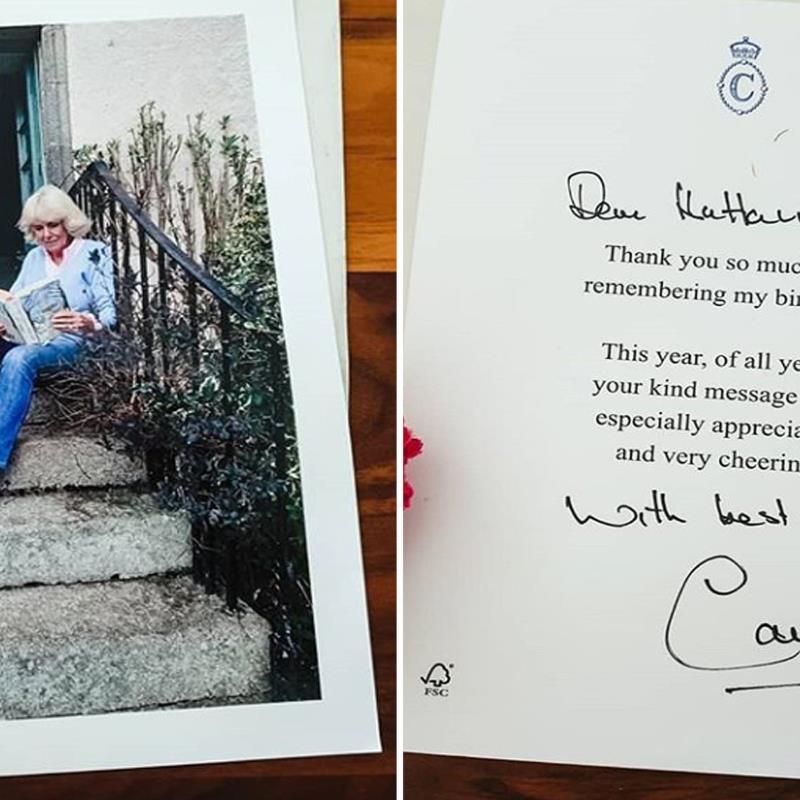 C
Dear
Thank you so muc
remembering my bir
This year, of all ye
your kind message
especially apprecia
and very cheerin
With best
Ca
FSC